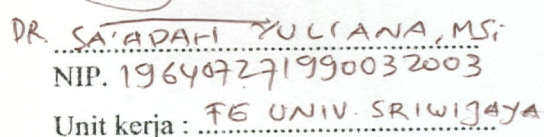 DR. SA'ADAH YULIANA, MSi
NIP. 196407271990032003
Unit kerja : FE UNIV. SRIWIJAYA